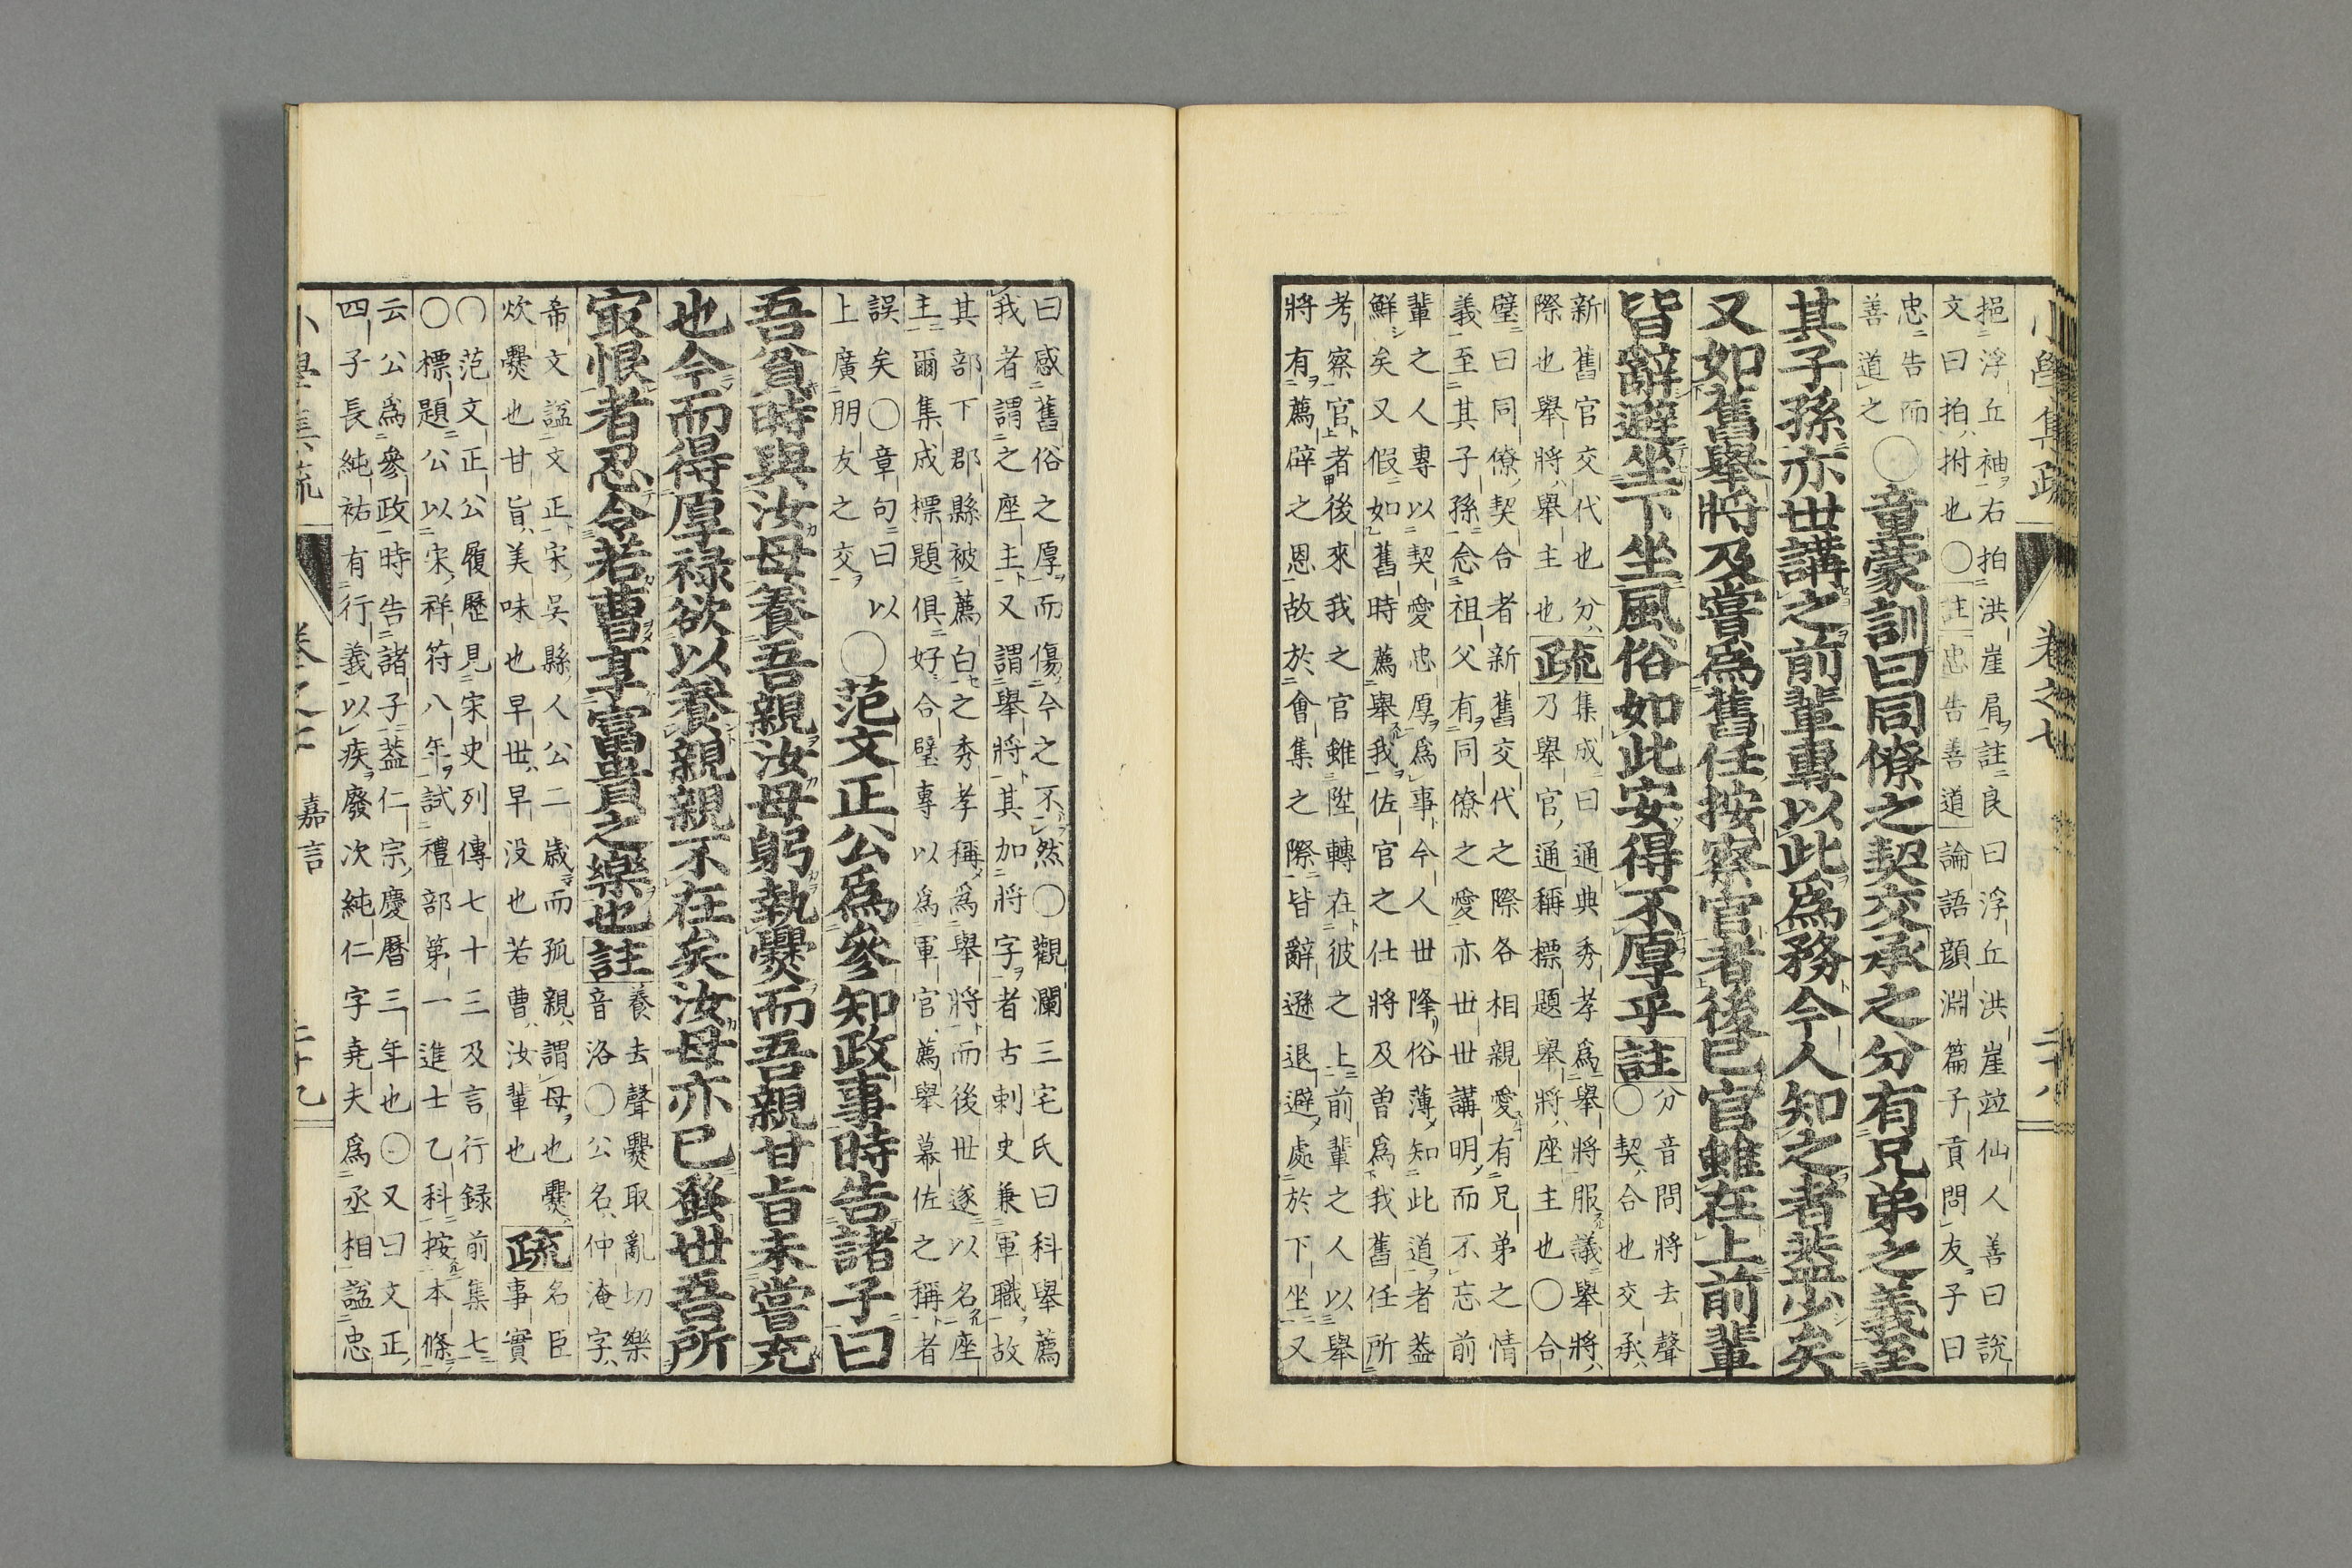 小學集疏　卷之七　二十八
挹浮丘袖右拍洪崖肩註良曰浮丘洪崖竝仙人善曰說
文曰拍拊也〇註忠告善道論語顔淵篇子貢問友子曰
忠告而
善道之
〇童蒙訓曰同僚之契交承之分有兄弟之義至
其子孫亦世講之前輩專以此爲務今人知之者葢少矣
又如舊舉將及嘗爲舊任按察官者後已官雖在上前輩
皆辭避坐下坐風俗如此安得不厚乎註
分音問將去聲
〇契合也交承
新舊官交代也分
際也舉將舉主也
疏
集成曰通典秀孝爲舉將服議舉將
乃舉官通稱標題舉將座主也〇合
璧曰同僚契合者新舊交代之際各相親愛有兄弟之情
義至其子孫念祖父有同僚之愛亦世世講明而不忘前
輩之人專以契愛忠厚爲事今人世降俗薄知此道者葢
鮮矣又假如舊時薦舉我佐官之仕將及曽爲我舊任所
考察官者後來我之官雖陞轉在彼之上前輩之人以舉
將有薦辟之恩故於會集之際皆辭遜退避處於下坐又
曰感舊俗之厚而傷今之不然〇觀瀾三宅氏曰科舉薦
我者謂之座主又謂舉將其加將字者古刺史兼軍職故
其部下郡縣被薦白之秀孝稱爲舉將而後世遂以名座
主爾集成標題俱好合璧專以爲軍官薦舉幕佐之稱者
誤矣〇章句曰以
上廣朋友之交
〇范文正公爲參知政事時告諸子曰
吾貧時與汝母養吾親汝母躬執爨而吾親甘旨未嘗充
也今而得厚祿欲以養親親不在矣汝母亦已蚤世吾所
㝡恨者忍令若曹享富貴之樂也註
養去聲爨取亂切樂
音洛〇公名仲淹字
希文謚文正宋吳縣人公二歲而孤親謂母也爨
炊爨也甘旨美味也早世早没也若曹汝輩也
疏
名臣
事實
〇范文正公履歷見宋史列傳七十三及言行録前集七
〇標題公以宋祥符八年試禮部第一進士乙科按本條
云公爲參政時告諸子葢仁宗慶曆三年也〇又曰文正
四子長純祐有行義以疾廢次純仁字堯夫爲丞相謚忠
小學集疏　卷之七　嘉言　二十九